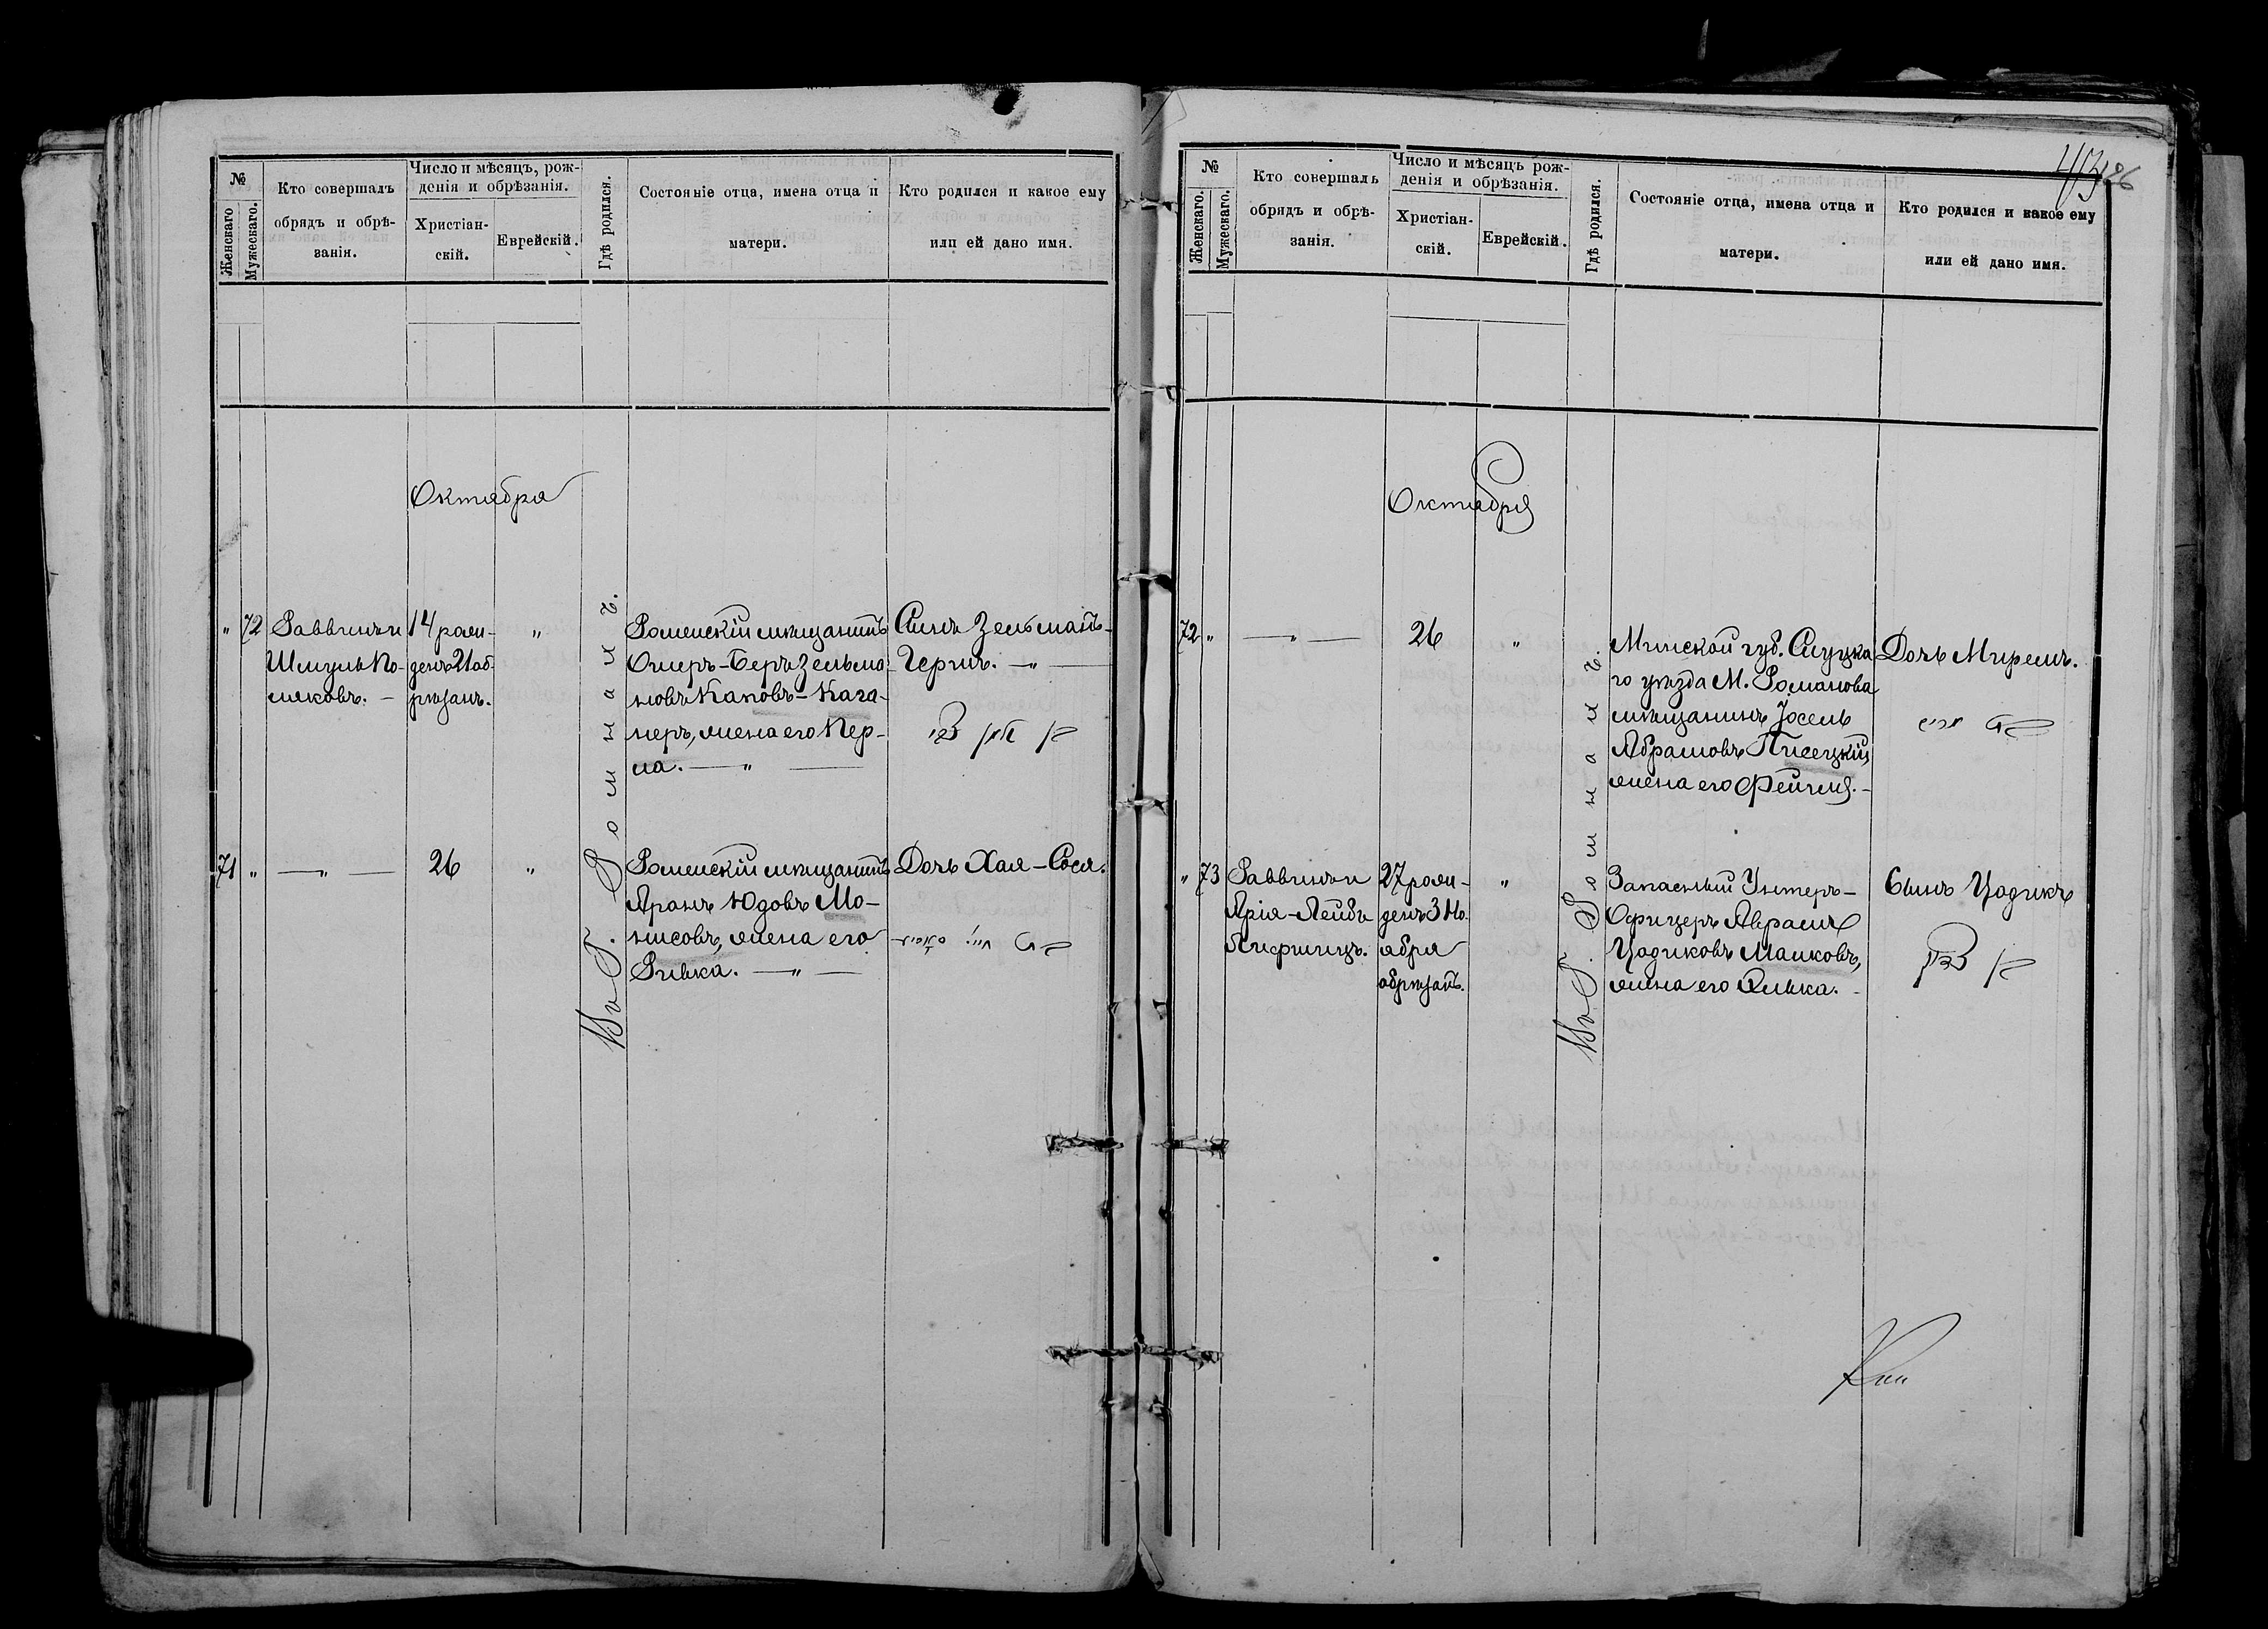 №
Женскаго.
Мужескаго.
Кто совершалъ
обрядъ и обрѣ-
занія.
Число и мѣсяцъ, рож-
денія и обрѣзанія.
Христіан-
скій.
Еврейскій.
Гдѣ родился.
Состояніе отца, имена отца и
матери.
Кто родился и какое ему
или ей дано имя.
Октября
" 72
Раввинъ и
Шмуль По-
ляковъ. —
14 рож-
денъ 21 об-
рѣзанъ.
"
Въ Г. Ромнахъ.
Роменскій мѣщанинъ
Ошеръ-Беръ Зельма-
новъ Кановъ-Кага-
неръ, жена его Пер-
ла. — " —
Сынъ Зельманъ-
Гершъ. — " —
71 "
— " —
26
"
Роменскій мѣщанинъ
Аронъ Юдовъ Мо-
нисовъ, жена его
Ривка. — " —
Дочь Хая-Сося.
№
Женскаго.
Мужескаго.
Кто совершалъ
обрядъ и обрѣ-
занія.
Число и мѣсяцъ рож-
денія и обрѣзанія.
Христіан-
скій.
Еврейскій.
Гдѣ родился.
Состояніе отца, имена отца и
матери.
Кто родился и какое ему
или ей дано имя.
Октября
72 "
— " —
26
"
Въ Г. Ромнахъ.
Минской губ. Слуцка
го уѣзда М. Романова
мѣщанинъ Іосель
Абрамовъ Писецкій,
жена его Фейгля. —
Дочь Миремъ.
" 73
Раввинъ и
Арія-Лейба
Лифшицъ.
27 рож-
денъ 3 Но-
ября
обрѣзанъ.
"
Запасный Унтеръ-
Офицеръ Аврамъ
Цодиковъ Маиковъ,
жена его Элька. —
Сынъ Цодикъ
בן צדיק